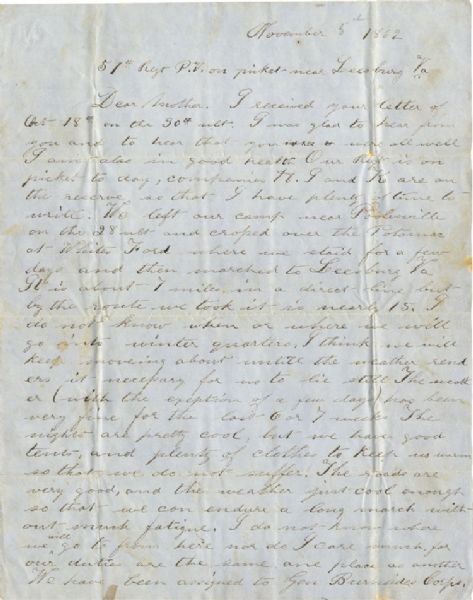 November 5th 1862
51st Regt P.V. on picket near Leesburg Va
Dear Mother. I received your letter of
Oct 18th on the 30th ult. I was glad to hear from
you and to hear that you were all well
I am also in good health. Our Regt is on
picket to day, companies H. I and K are on
the reserve so that I have plenty of time to
write. We left our camp near
on the 28 ult and crossed over the Potomac
at Whites Ford where we staid for a few
days and then marched to Leesburg Va
It is about 7 miles in a direct line but
by the route we took it is nearly 15. I
do not know when or where we will
go into winter quarters, I think we will
keep moveing about untill the weather rend
ers it necessary for us to lie still The weath
er (with the exception of a few days) has been
very fine for the last 6 or 7 weeks The
nights are pretty cool, but we have good
tents, and plenty of clothes to keep us warm
so that we do not suffer. The roads are
very good, and the weather just cool enough
so that we can endure a long march with
out much fatigue. I do not know where
we will go to from here nor do I care much for
our duties are the same one place as another
We have been assigned to Gen Burnsides Corps,